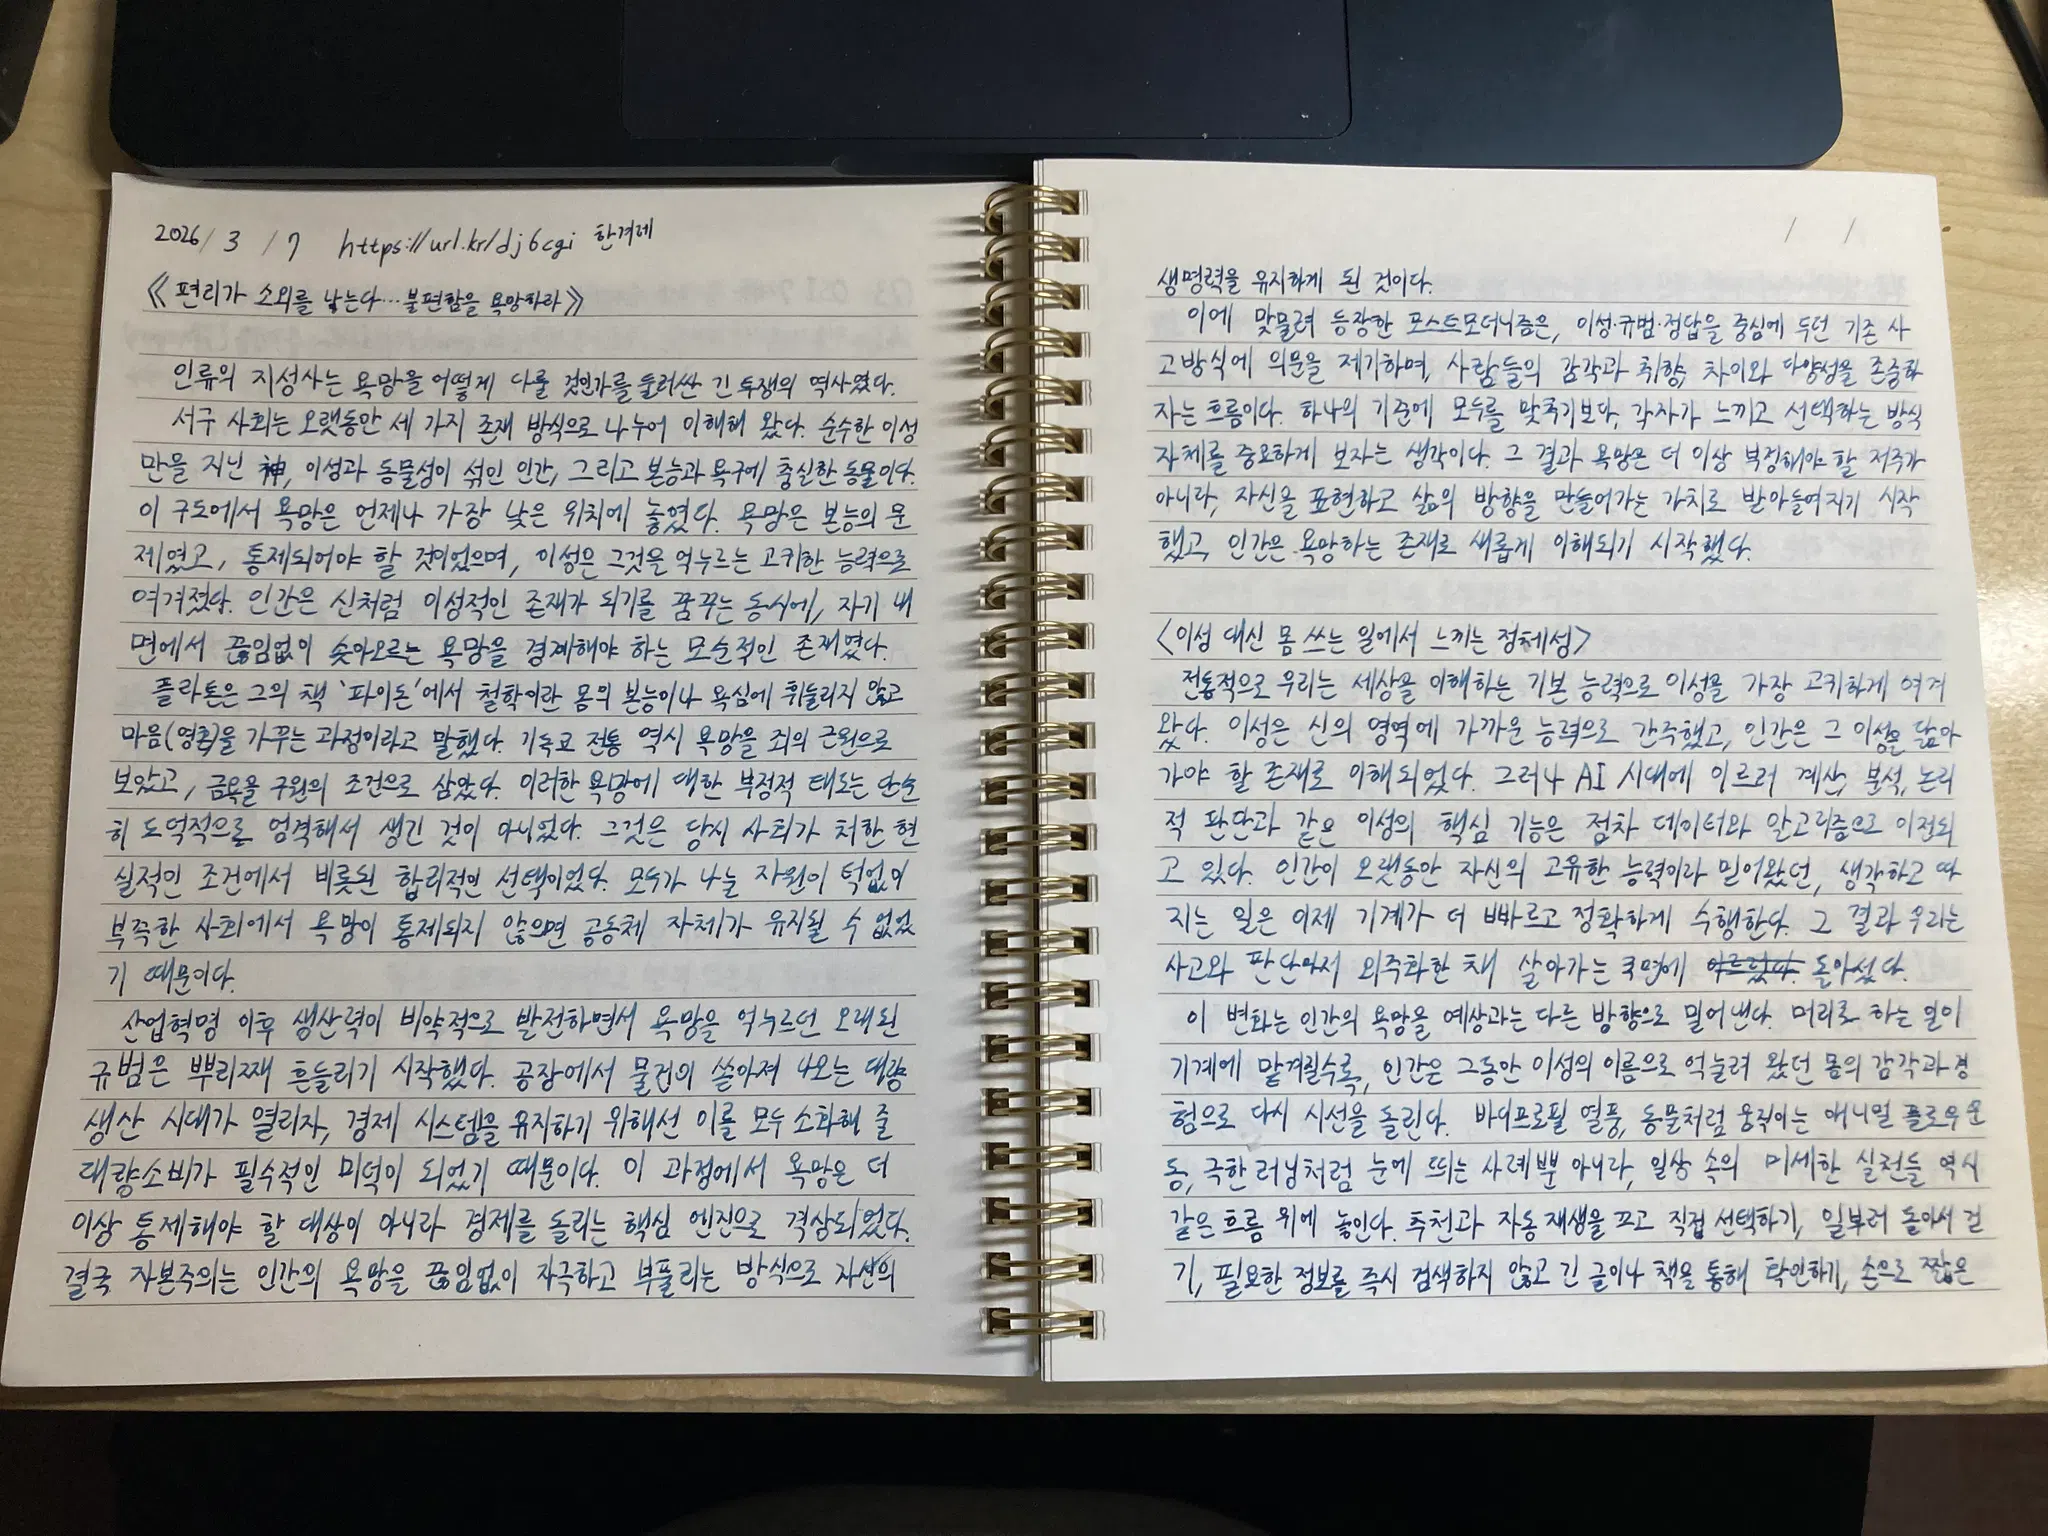 2026 / 3 / 7 https://url.kr/dj6cgi 한겨레
《편리가 소외를 낳는다…불편함을 욕망하라》
인류의 지성사는 욕망을 어떻게 다룰 것인가를 둘러싼 긴 투쟁의 역사였다.
서구 사회는 오랫동안 세 가지 존재 방식으로 나누어 이해해 왔다. 순수한 이성
만을 지닌 神, 이성과 동물성이 섞인 인간, 그리고 본능과 욕구에 충실한 동물이다.
이 구도에서 욕망은 언제나 가장 낮은 위치에 놓였다. 욕망은 본능의 문
제였고, 통제되어야 할 것이었으며, 이성은 그것을 억누르는 고귀한 능력으로
여겨졌다. 인간은 신처럼 이성적인 존재가 되기를 꿈꾸는 동시에, 자기 내
면에서 끊임없이 솟아오르는 욕망을 경계해야 하는 모순적인 존재였다.
플라톤은 그의 책 '파이돈'에서 철학이란 몸의 본능이나 욕심에 휘둘리지 않고
마음(영혼)을 가꾸는 과정이라고 말했다. 기독교 전통 역시 욕망을 죄의 근원으로
보았고, 금욕을 구원의 조건으로 삼았다. 이러한 욕망에 대한 부정적 태도는 단순
히 도덕적으로 엄격해서 생긴 것이 아니었다. 그것은 당시 사회가 처한 현
실적인 조건에서 비롯된 합리적인 선택이었다. 모두가 나눌 자원이 턱없이
부족한 사회에서 욕망이 통제되지 않으면 공동체 자체가 유지될 수 없었
기 때문이다.
산업혁명 이후 생산력이 비약적으로 발전하면서 욕망을 억누르던 오래된
규범은 뿌리째 흔들리기 시작했다. 공장에서 물건이 쏟아져 나오는 대량
생산 시대가 열리자, 경제 시스템을 유지하기 위해선 이를 모두 소화해 줄
대량소비가 필수적인 미덕이 되었기 때문이다. 이 과정에서 욕망은 더
이상 통제해야 할 대상이 아니라 경제를 돌리는 핵심 엔진으로 격상되었다.
결국 자본주의는 인간의 욕망을 끊임없이 자극하고 부풀리는 방식으로 자신의
/ /
생명력을 유지하게 된 것이다.
이에 맞물려 등장한 포스트모더니즘은, 이성·규범·정답을 중심에 두던 기존 사
고방식에 의문을 제기하며, 사람들의 감각과 취향, 차이와 다양성을 존중하
자는 흐름이다. 하나의 기준에 모두를 맞추기보다, 각자가 느끼고 선택하는 방식
자체를 중요하게 보자는 생각이다. 그 결과 욕망은 더 이상 부정해야 할 저주가
아니라, 자신을 표현하고 삶의 방향을 만들어가는 가치로 받아들여지기 시작
했고, 인간은 욕망하는 존재로 새롭게 이해되기 시작했다.
<이성 대신 몸 쓰는 일에서 느끼는 정체성>
전통적으로 우리는 세상을 이해하는 기본 능력으로 이성을 가장 고귀하게 여겨
왔다. 이성은 신의 영역에 가까운 능력으로 간주했고, 인간은 그 이성을 닮아
가야 할 존재로 이해되었다. 그러나 AI 시대에 이르러 계산, 분석, 논리
적 판단과 같은 이성의 핵심 기능은 점차 데이터와 알고리즘으로 이전되
고 있다. 인간이 오랫동안 자신의 고유한 능력이라 믿어왔던, 생각하고 따
지는 일은 이제 기계가 더 빠르고 정확하게 수행한다. 그 결과 우리는
사고와 판단마저 외주화한 채 살아가는 국면에 이르렀다. 돌아섰다.
이 변화는 인간의 욕망을 예상과는 다른 방향으로 밀어낸다. 머리로 하는 일이
기계에 맡겨질수록, 인간은 그동안 이성의 이름으로 억눌려 왔던 몸의 감각과 경
험으로 다시 시선을 돌린다. 바디프로필 열풍, 동물처럼 움직이는 애니멀 플로우 운
동, 극한 러닝처럼 눈에 띄는 사례뿐 아니라, 일상 속의 미세한 실천들 역시
같은 흐름 위에 놓인다. 추천과 자동 재생을 끄고 직접 선택하기, 일부러 돌아서 걷
기, 필요한 정보를 즉시 검색하지 않고 긴 글이나 책을 통해 확인하기, 손으로 짧은